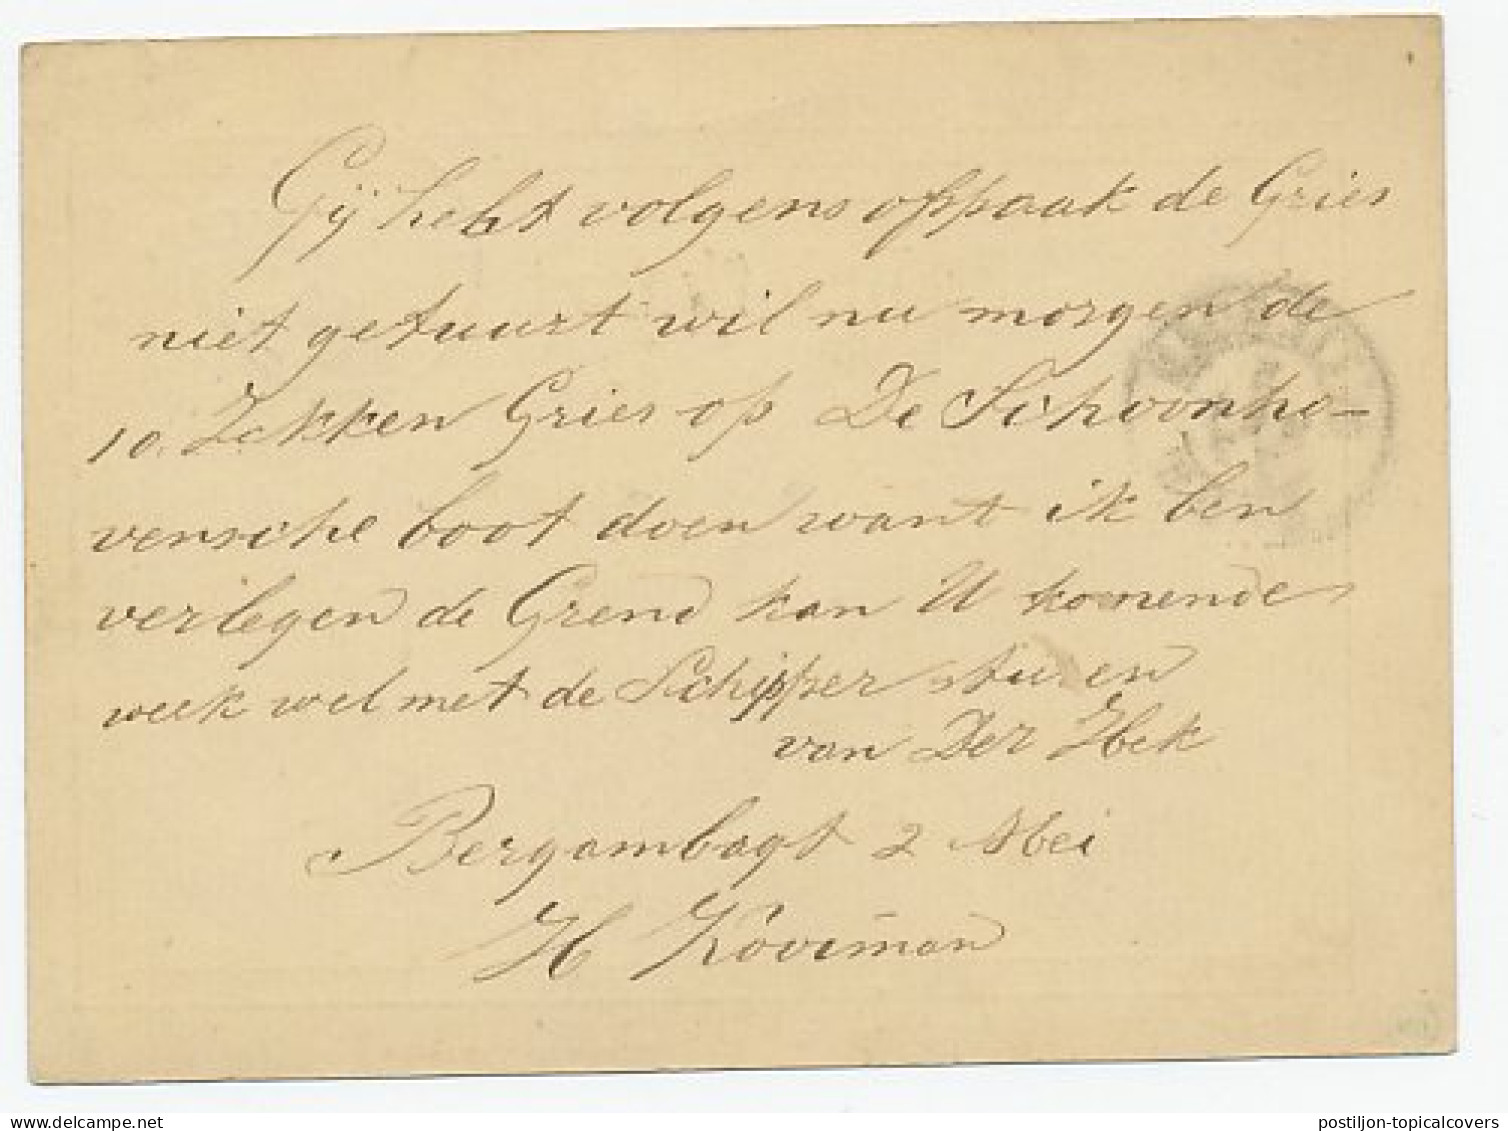 Gij hebt volgens afspaak de Gries
niet getuurt wil nu morgen de
10 Zakken Gries op De Schoonho-
vensche boot doen want ik ben
verlegen de Grend kan U komende
week wel met de Schipper sturen
van Der Hek
Bergambagt 2 Mei
H Kooiman
postiljon-topicalcovers